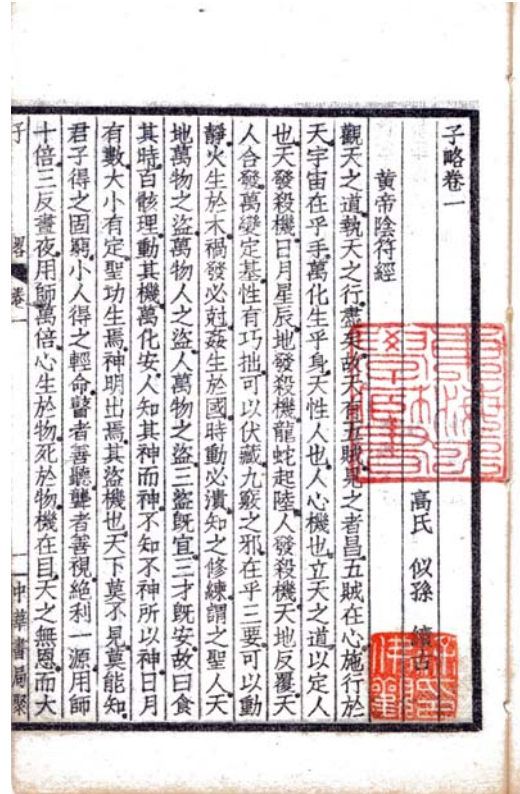 子略卷一
高氏 似孫 續古
黃帝陰符經
觀天之道執天之行盡矣故天有五賊見之者昌五賊在心施行於
天宇宙在乎手萬化生乎身天性人也人心機也立天之道以定人
也天發殺機日月星辰地發殺機龍蛇起陸人發殺機天地反覆天
人合發萬變定基性有巧拙可以伏藏九竅之邪在乎三要可以動
靜火生於木禍發必尅姦生於國時動必潰知之修練謂之聖人天
地萬物之盜萬物人之盜人萬物之盜三盜旣宜三才旣安故曰食
其時百骸理動其機萬化安人知其神而神不知不神所以神日月
有數大小有定聖功生焉神明出焉其盜機也天下莫不見莫能知
君子得之固窮小人得之輕命瞽者善聽聾者善視絶利一源用師
十倍三反晝夜用師萬倍心生於物死於物機在目天之無恩而大
子 略 卷一 一 中華書局聚